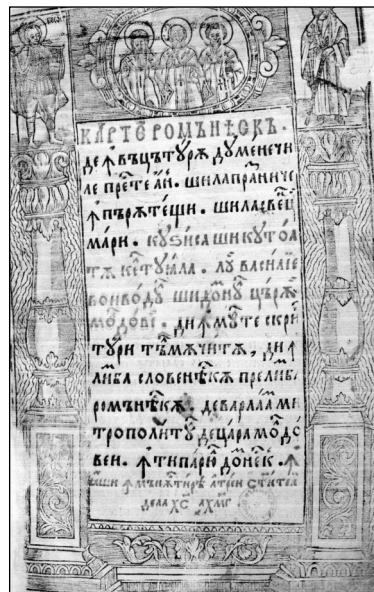 КАРТЕ РОМѪНѢСКЪ.
де ꙟвъцътурѫ думенечи
ле престе ан. ши ла празниче
ꙟпърѫтещи. ши ла свенци
мари. ку ѕиса ши ку тоа
тѫ келтуіала. луй василіе
воиводул ши домнул църѫи
молдовеи. дин мулте скрип
тури тълмѫчитѫ, дин
лимба словенѣскѫ пре лимба
ромѫнѣскѫ. де варлаам ми
трополитул де цара молдо
веи. ꙟ типарюл домнеск. ꙟ
ꙗши ꙟ мънѫстирѣ а трей сти͠тели
де ла х҃с ҂ахмг